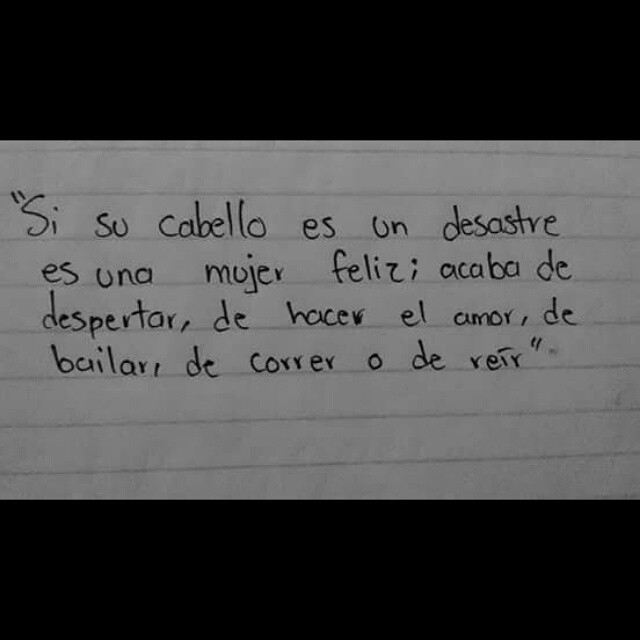 "Si su cabello es un desastre
es una mujer feliz; acaba de
despertar, de hacer el amor, de
bailar, de correr o de reír"